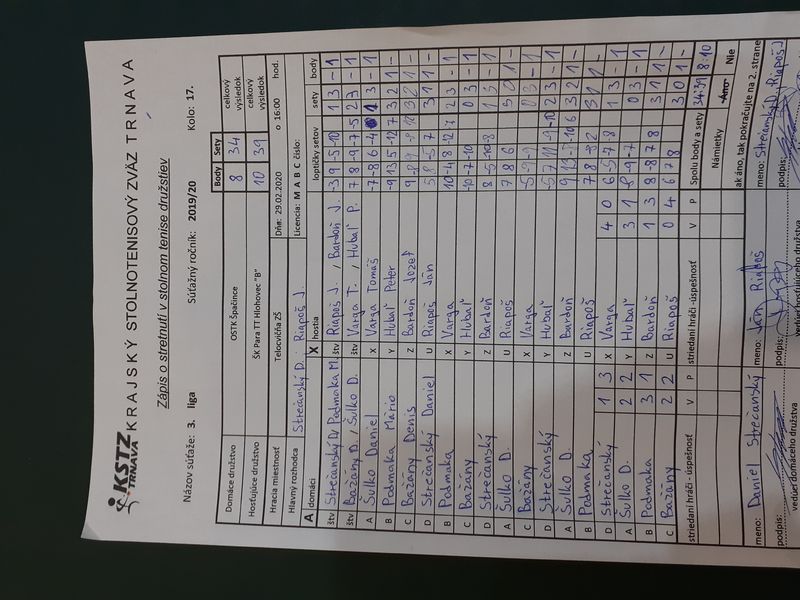 KSTZ TRNAVA KRAJSKÝ STOLNOTENISOVÝ ZVÄZ TRNAVA
Zápis o stretnutí v stolnom tenise družstiev
Názov súťaže: 3. liga Súťažný ročník: 2019/20 Kolo: 17.
Body Sety
Domáce družstvo OSTK Špačince 8 34 celkový výsledok
Hosťujúce družstvo ŠK Para TT Hlohovec "B" 10 39 celkový výsledok
Hracia miestnosť Telocvičňa ZŠ Dňa: 29.02.2020 o 16:00 hod.
Hlavný rozhodca Strečanský D. Riapoš J. Licencia: M A B C číslo:
A domáci X hostia loptičky setov sety body
štv Strečanský D/ Podmaka M. štv Riapoš J. / Bardoň J. -3 9 -5 -10 1 3 - 1
štv Bažány D. / Šulko D. štv Varga T. / Hubaľ P. 7 8 -9 -7 -5 2 3 - 1
A Šulko Daniel X Varga Tomáš -7 -8 6 -4 1 3 - 1
B Podmaka Mário Y Hubaľ Peter -9 13 5 -12 7 3 2 1 -
C Bažány Denis Z Bardoň Jozef 3 2 1 -
D Strečanský Daniel U Riapoš Ján 5 8 -5 7 3 1 1 -
B Podmaka X Varga 10 -4 8 -12 2 3 - 1
C Bažány Y Hubaľ -10 -7 -10 0 3 - 1
D Strečanský Z Bardoň 8 -5 -10 -8 1 3 - 1
A Šulko D. U Riapoš 7 8 6 3 0 1 -
C Bažány X Varga -5 -9 -9 0 3 - 1
D Strečanský Y Hubaľ -5 7 11 -9 -10 2 3 - 1
A Šulko D. Z Bardoň 3 2 1 -
B Podmaka U Riapoš 7 8 -8 2 3 1 1 -
D Strečanský 1 3 X Varga 4 0 6 -5 -7 -8 1 3 - 1
A Šulko D. 2 2 Y Hubaľ 3 1 -8 -9 -7 0 3 - 1
B Podmaka 3 1 Z Bardoň 1 3 8 -8 7 8 3 1 1 -
C Bažány 2 2 U Riapoš 0 4 6 7 8 3 0 1 -
striedaní hráči - úspešnosť V P striedaní hráči -úspešnosť V P Spolu body a sety 34:39 8:10
Námietky Áno Nie
ak áno, tak pokračujte na 2. strane
meno: Daniel Strečanský meno: Ján Riapoš meno: Strečanský D., Riapoš J.
podpis: podpis: podpis:
vedúci domáceho družstva vedúci hosťujúceho družstva